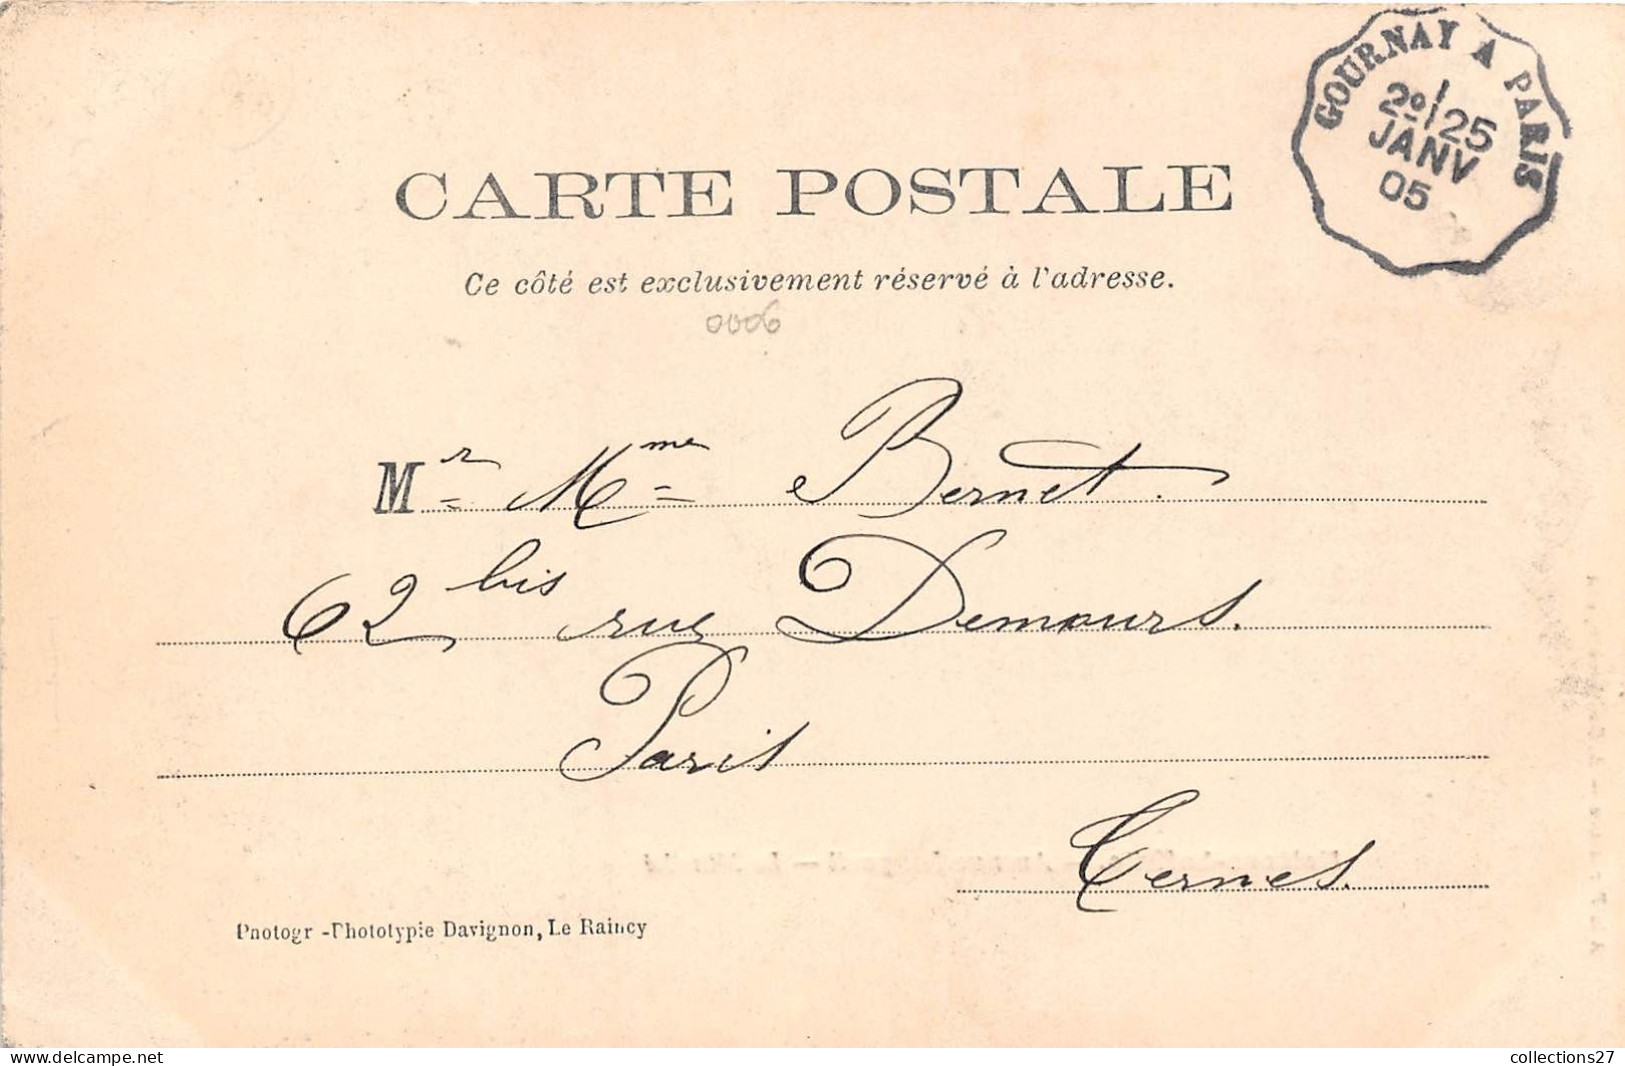 GOURNAY A PARIS
2º/25
JANV
05
CARTE POSTALE
Ce côté est exclusivement réservé à l'adresse.
0006
Mr Mme Bernet.
62 bis rue Demours.
Paris
Ternes.
Photogr-Phototypie Davignon, Le Raincy
https://www.delcampe.net
collections27